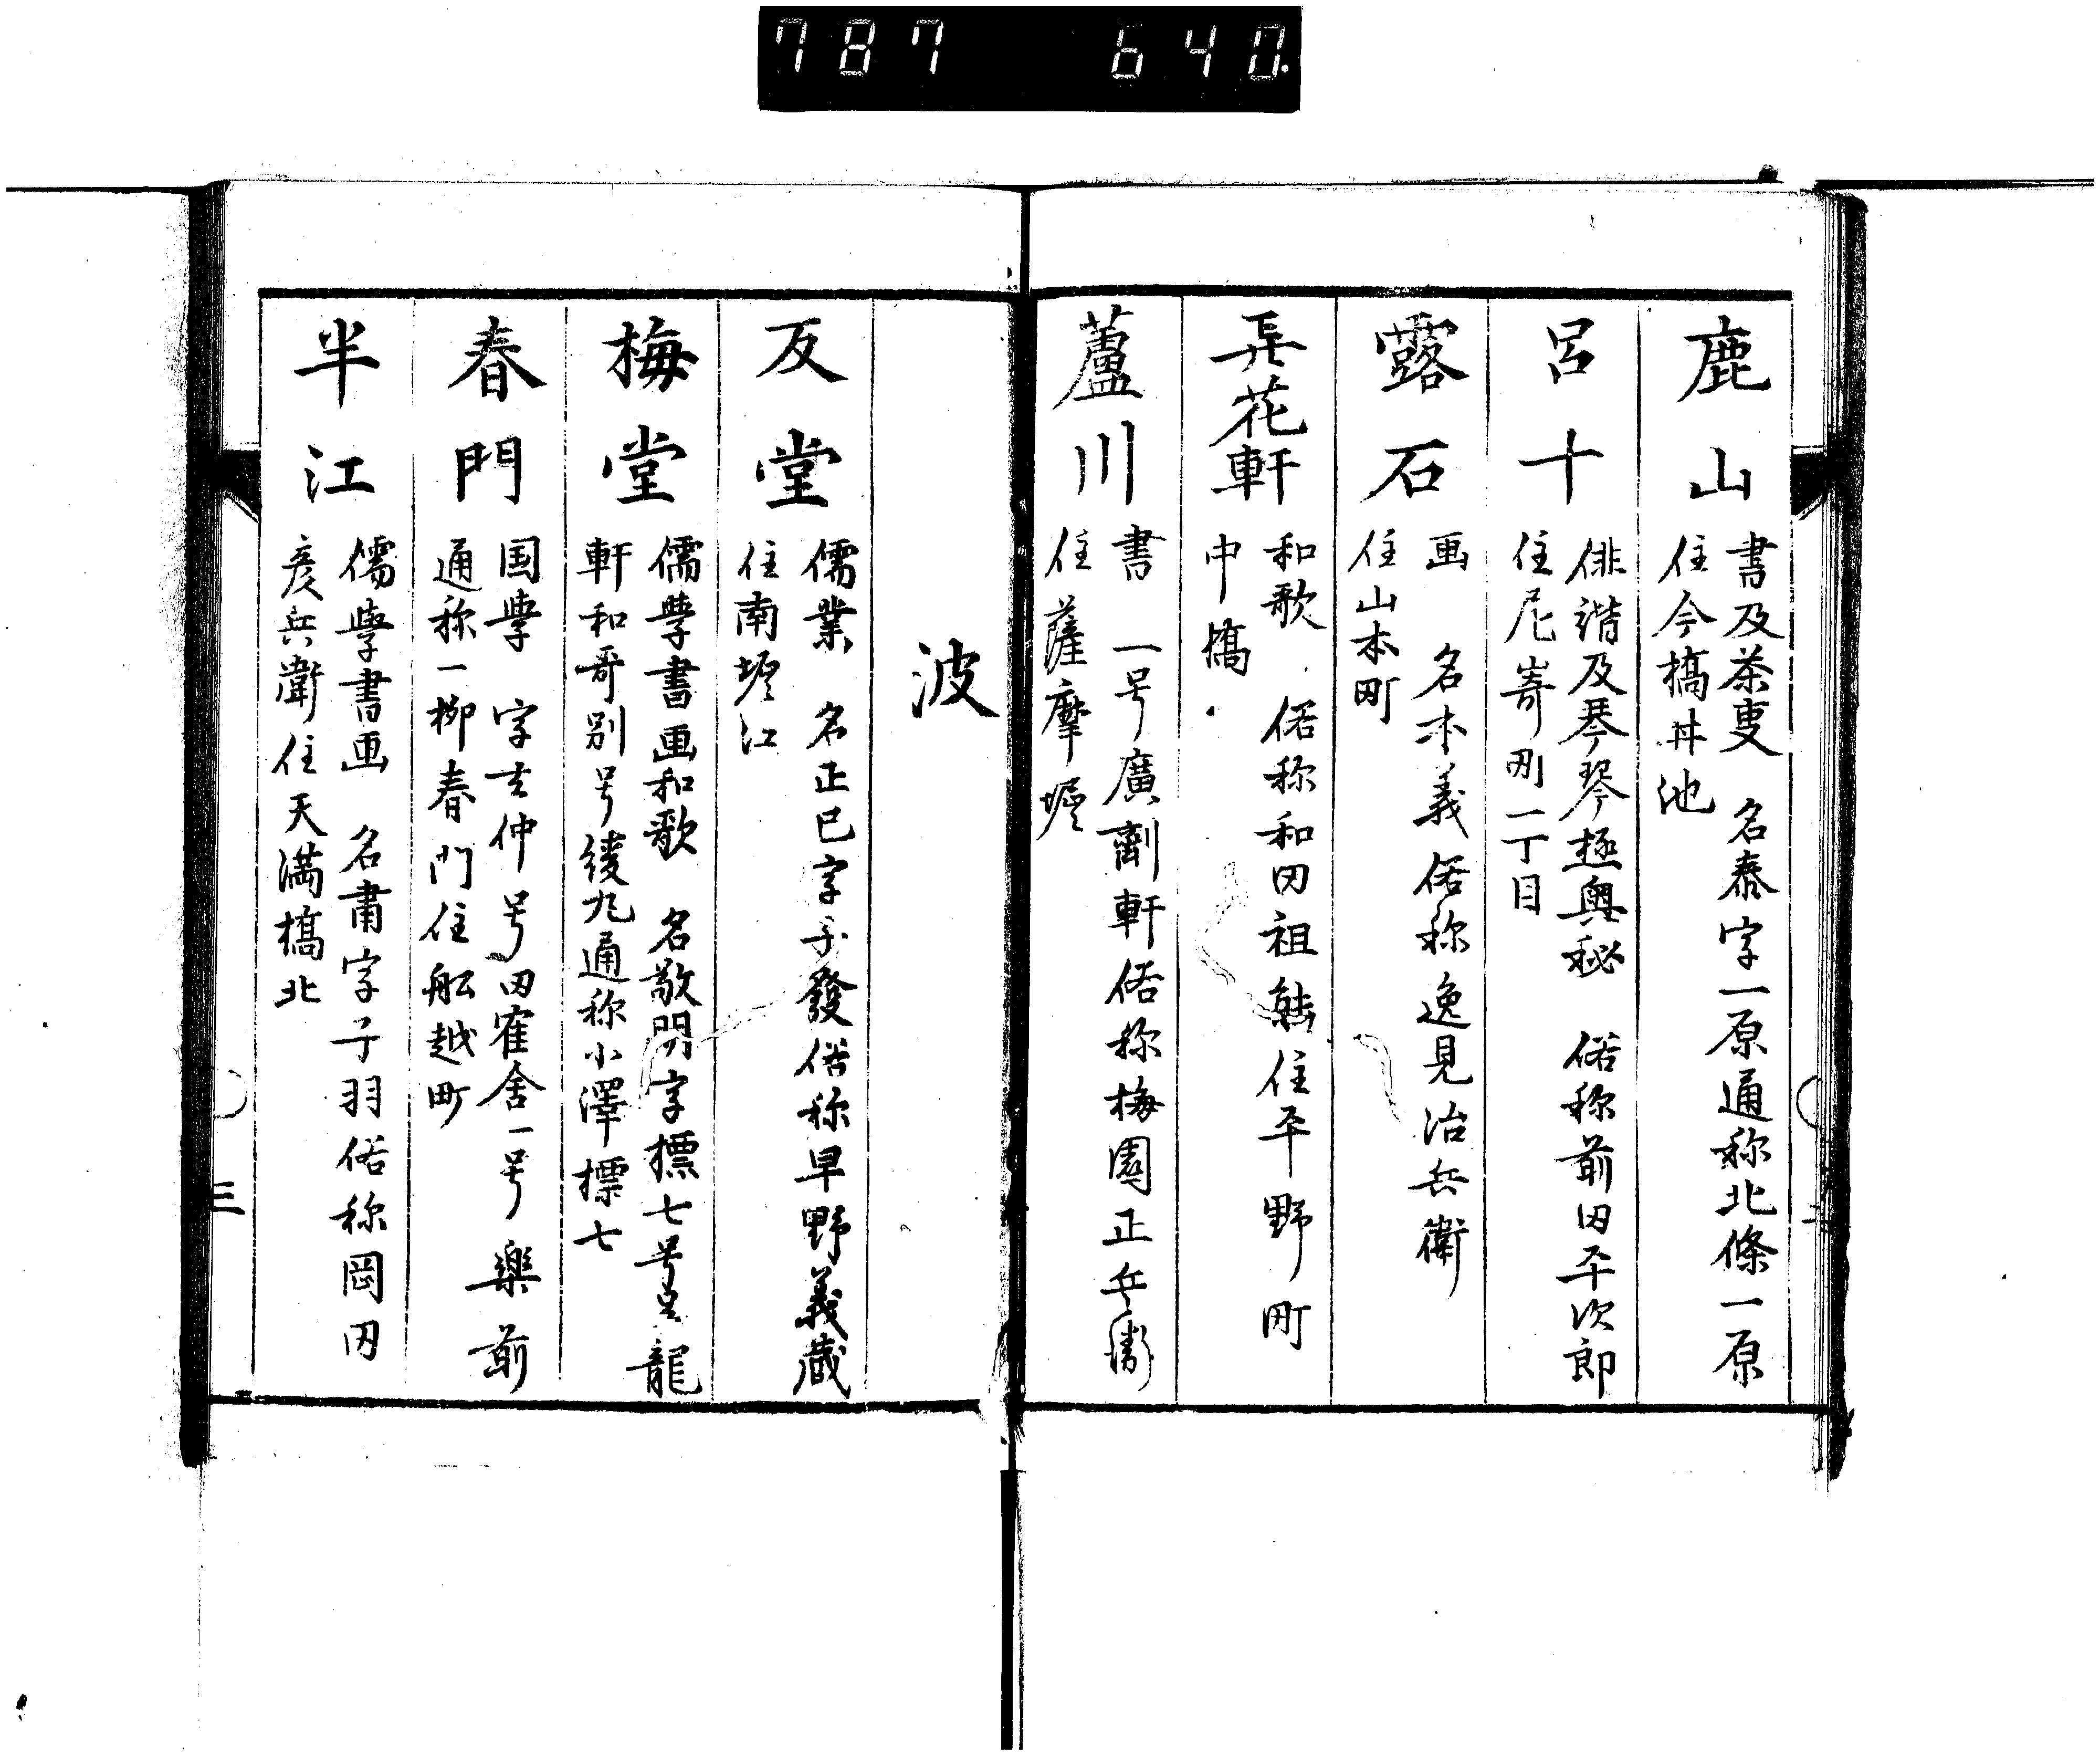 787 640.
鹿山
書及茶叓 名泰字一原通称北條一原
住今橋丼池
呂十
俳諧及琴琴極奥秘 俗称前田平次郎
住尼嵜町一丁目
露石
画 名本義俗称逸見治兵衛
住山本町
弄花軒
和歌 俗称和田祖能住平野町
中橋
蘆川
書 一号廣劑軒俗称梅園正兵衛
住薩摩堀
波
反堂
儒業 名正己字子發俗称早野義蔵
住南堀江
梅堂
儒學書画和歌 名敬明字標七号卧龍
軒和哥别号綾丸通称小澤標七
春門
国學 字玄仲号田寉舍一号樂前
通称一柳春門住舩越町
半江
儒學書画 名肅字子羽俗称岡田
彦兵衞住天満橋北
三